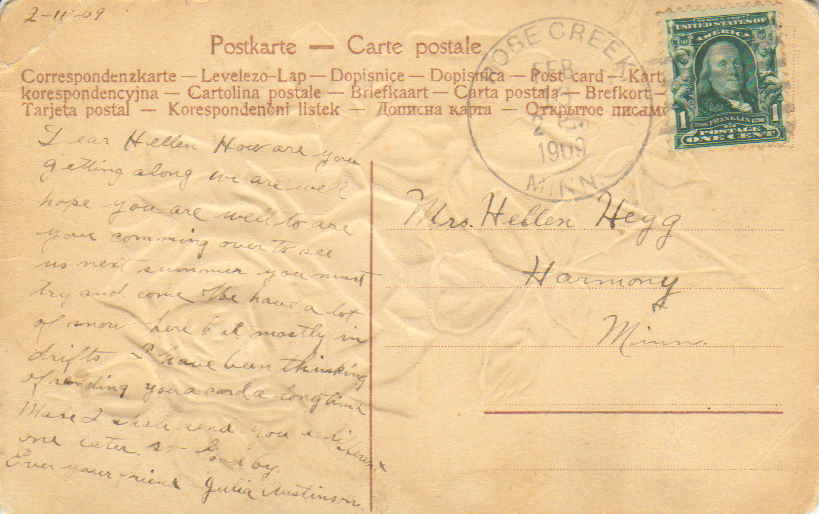 2-11-09
Postkarte — Carte postale
Correspondenzkarte — Levelezo-Lap — Dopisnice — Dopisnica — Post card — Kart
korespondencyjna — Cartolina postale — Briefkaart — Carta postala — Brefkort —
Tarjeta postal — Korespondenčni listek — Дописна карта — Открытое письмо
ROSE CREEK
FEB
1909
MINN.
UNITED STATES OF
AMERICA
FRANKLIN
1 1
POSTAGE
ONE CENT
Dear Hellen How are you
getting along we are well
hope you are well to are
you comming over to see
us next summer you must
try and come We have a lot
of snow here b it mostly in
drifts I have been thinking
of sending you a card a long time
I shall send you a different
one later so Good by
Ever your friend Julia Austinson
Mrs. Hellen Hegg
Harmony
Minn.